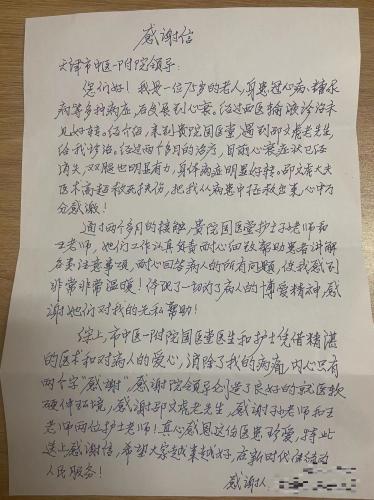 感谢信
天津市中医一附院领导:
您们好!我是一位75岁的老人,身患冠心病、糖尿
病等多种病症,后发展到心衰。经过西医输液诊治未
见好转。经介绍,来到贵院国医堂遇到邵文虎老先生,
给我诊治。经过两个多月的治疗,目前心衰症状已经
消失,双腿也明显有力,身体病症明显好转。邵文虎大夫
医术高超救死扶伤,把我从病患中拯救出来,心中万
分感激!
通过两个多月的接触,贵院国医堂护士孙老师和
王老师,她们工作认真负责耐心细致帮助患者讲解
各类注意事项,耐心回答病人的所有问题,使我感到
非常非常温暖!体现了一切为了病人的博爱精神,感
谢她们对我的无私帮助!
综上,市中医一附院国医堂医生和护士凭借精湛
的医术和对病人的爱心,消除了我的病痛,内心只有
两个字“感谢”,感谢院领导们创造了良好的就医软
硬件环境,感谢邵文虎老先生,感谢孙老师和王
老师两位护士老师!真心感恩这份医患珍爱,特此
送上感谢信,希望大家越来越好,在新时代继续为
人民服务!
感谢人